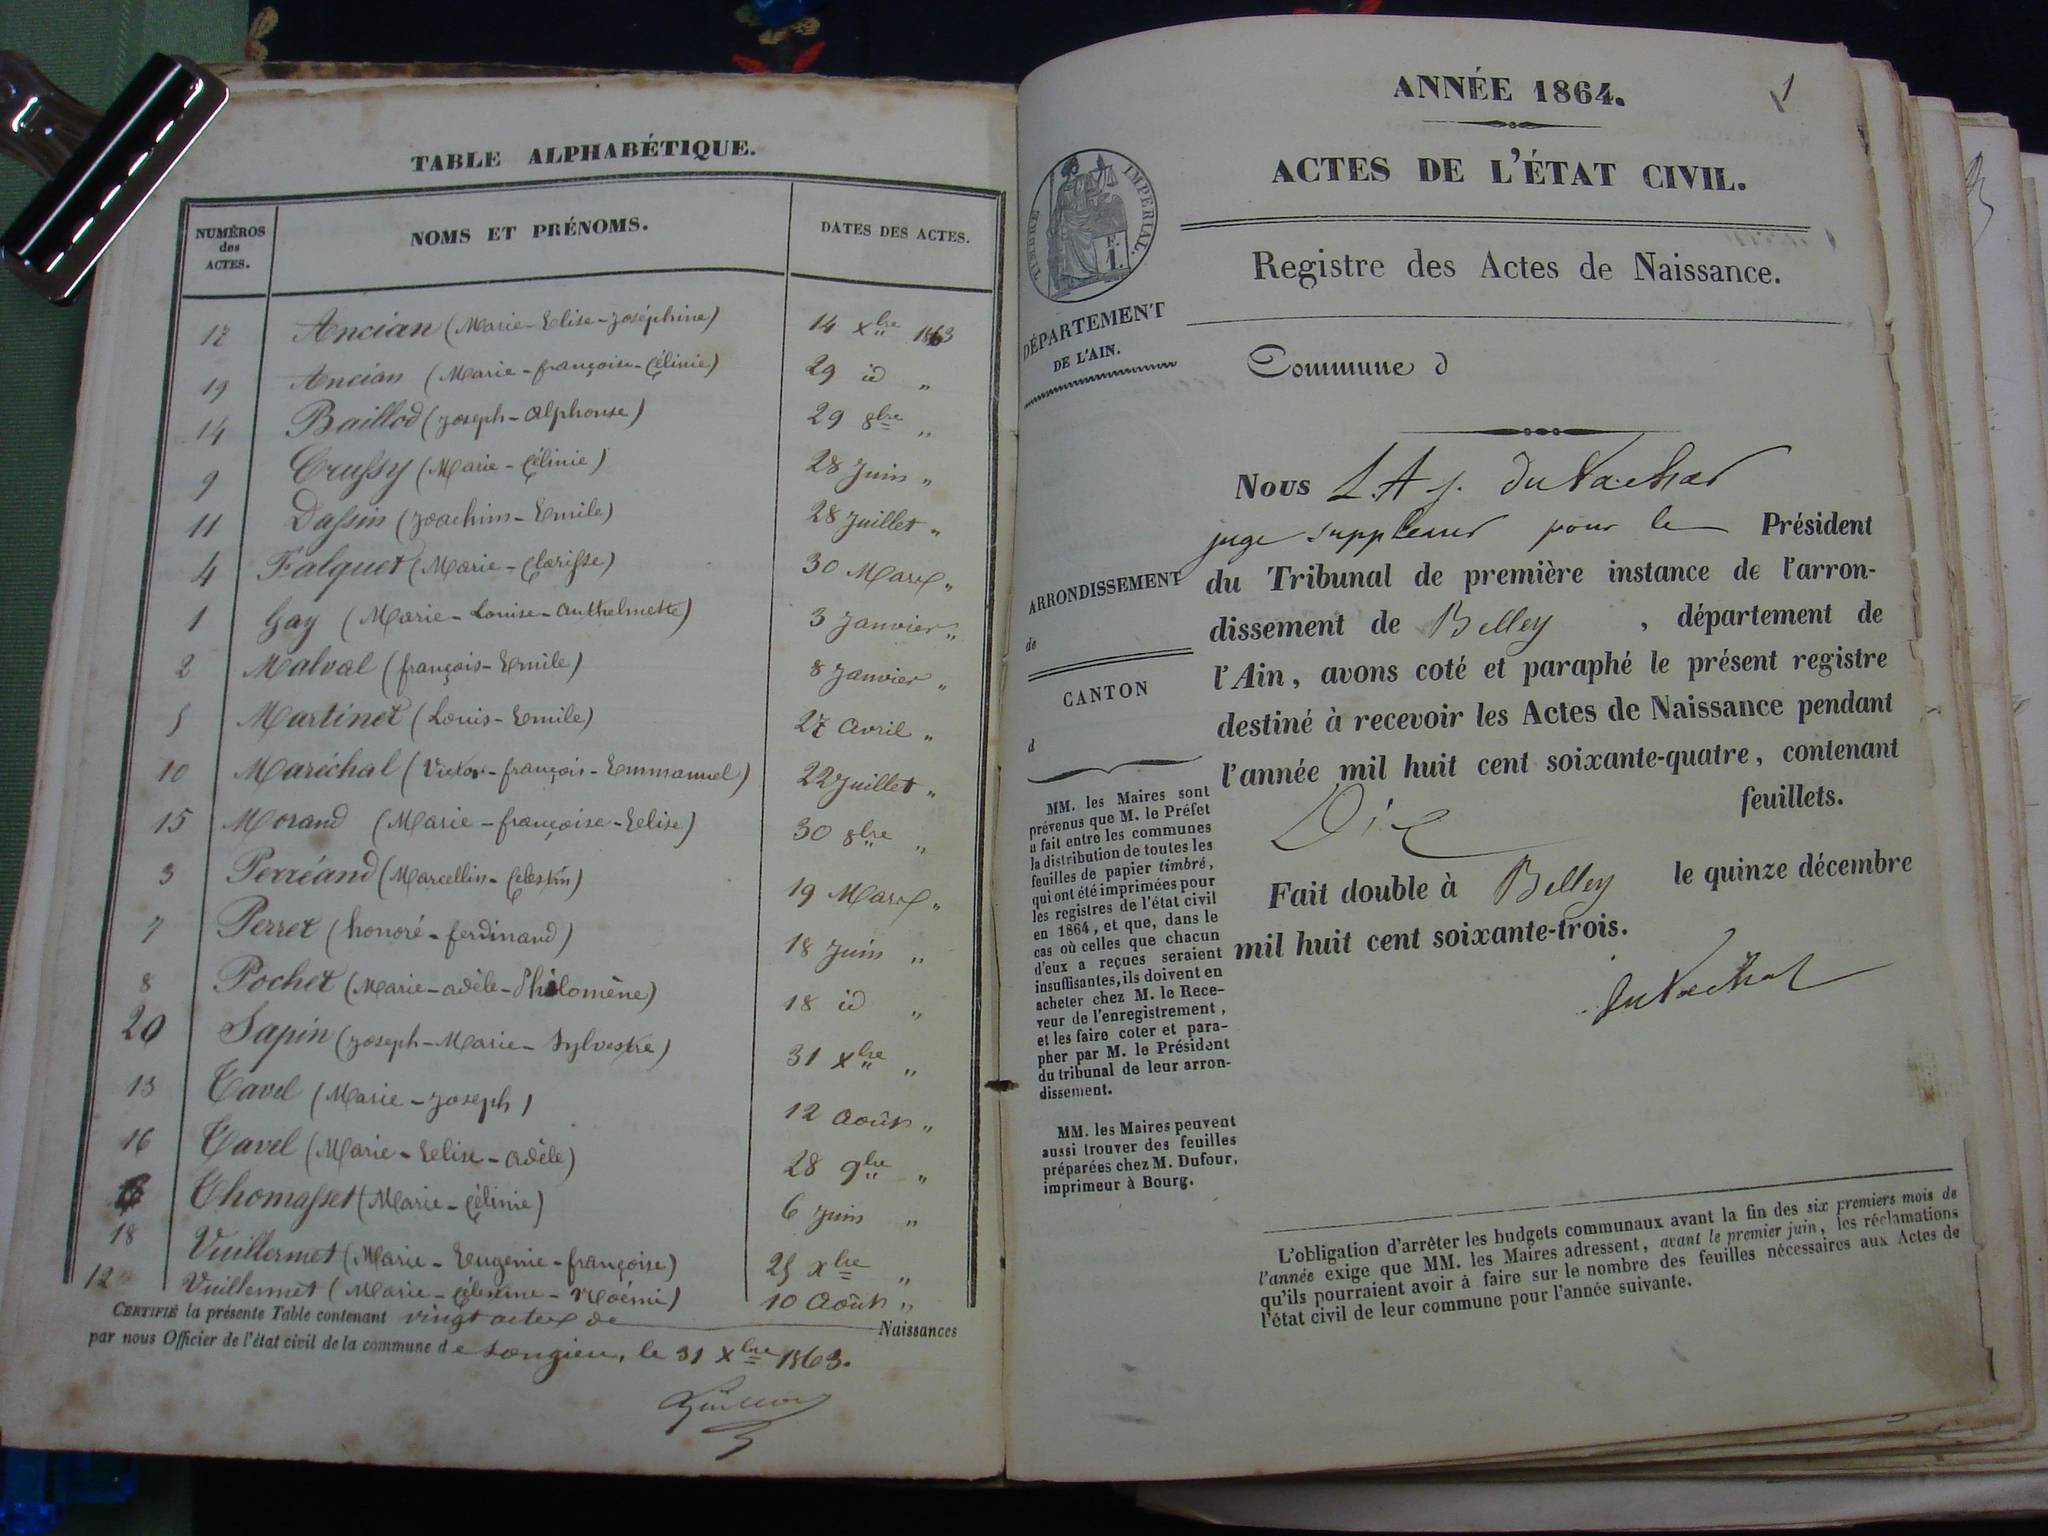 TABLE ALPHABÉTIQUE.
NUMÉROS des ACTES. NOMS ET PRÉNOMS. DATES DES ACTES.
17 Ancian (Marie-Elise-Joséphine) 14 xbre 1863
19 Ancian (Marie-françoise-Célinie) 29 id "
14 Baillod (Joseph-Alphonse) 29 8bre "
9 Crussy (Marie-Célinie) 28 Juin "
11 Dassin (Joachim-Emile) 28 Juillet "
4 Falquet (Marie-Clarisse) 30 Mars "
1 Gay (Marie-Louise-Anthelmette) 3 Janvier "
2 Malval (françois-Emile) 8 Janvier "
5 Martinet (Louis-Emile) 27 Avril "
10 Maréchal (Victor-françois-Emmanuel) 22 Juillet "
15 Morand (Marie-françoise-Elise) 30 8bre "
3 Perréand (Marcellin-Célestin) 19 Mars "
7 Perret (honoré-ferdinand) 18 Juin "
8 Pochet (Marie-adèle-Philomène) 18 id "
20 Sapin (Joseph-Marie-Sylvestre) 31 xbre "
13 Tavel (Marie-Joseph) 12 Août "
16 Tavel (Marie-Elise-adèle) 28 9bre "
6 Thomasset (Marie-Célinie) 6 Juin "
18 Vuillermet (Marie-Eugenie-françoise) 25 xbre "
12 Vuillermet (Marie-Célestine-Noémi) 10 Août "
CERTIFIÉ la présente Table contenant vingt actes de Naissances
par nous Officier de l'état civil de la commune de Songieu, le 31 Xbre 1863.
1
ANNÉE 1864.
ACTES DE L'ÉTAT CIVIL.
Registre des Actes de Naissance.
TIMBRE IMPÉRIAL.
DÉPARTEMENT
DE L'AIN.
Commune d
Nous L. A. J. Du Vachat
juge suppléant pour le Président
du Tribunal de première instance de l'arron-
dissement de Belley , département de
l'Ain, avons coté et paraphé le présent registre
destiné à recevoir les Actes de Naissance pendant
l'année mil huit cent soixante-quatre, contenant
Dix feuillets.
Fait double à Belley le quinze décembre
mil huit cent soixante-trois.
Du Vachat
ARRONDISSEMENT
de
CANTON
d
MM. les Maires sont
prévenus que M. le Préfet
a fait entre les communes
la distribution de toutes les
feuilles de papier timbré,
qui ont été imprimées pour
les registres de l'état civil
en 1864, et que, dans le
cas où celles que chacun
d'eux a reçues seraient
insuffisantes, ils doivent en
acheter chez M. le Rece-
veur de l'enregistrement,
et les faire coter et para-
pher par M. le Président
du tribunal de leur arron-
dissement.
MM. les Maires peuvent
aussi trouver des feuilles
préparées chez M. Dufour,
imprimeur à Bourg.
L'obligation d'arrêter les budgets communaux avant la fin des six premiers mois de
l'année exige que MM. les Maires adressent, avant le premier juin, les réclamations
qu'ils pourraient avoir à faire sur le nombre des feuilles nécessaires aux Actes de
l'état civil de leur commune pour l'année suivante.